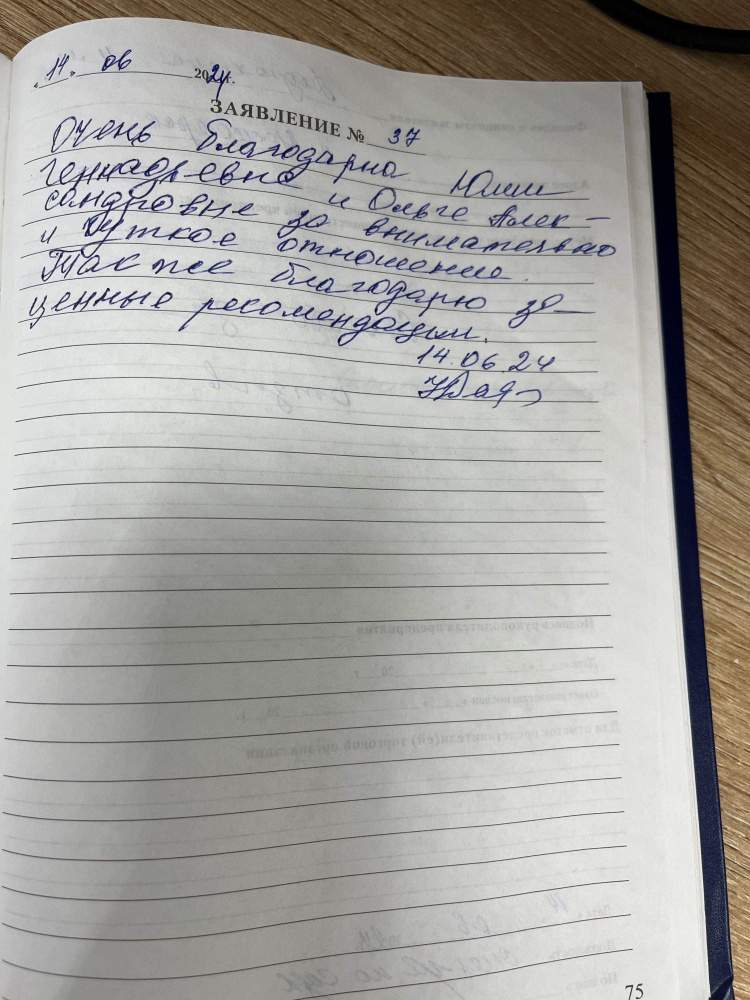 „14„ 06 2024г.
ЗАЯВЛЕНИЕ № 37
Очень благодарна Юлии
Геннадьевне и Ольге Алек-
сандровне за внимательно
и чуткое отношение.
Также благодарю за
ценные рекомендации.
14.06.24
75